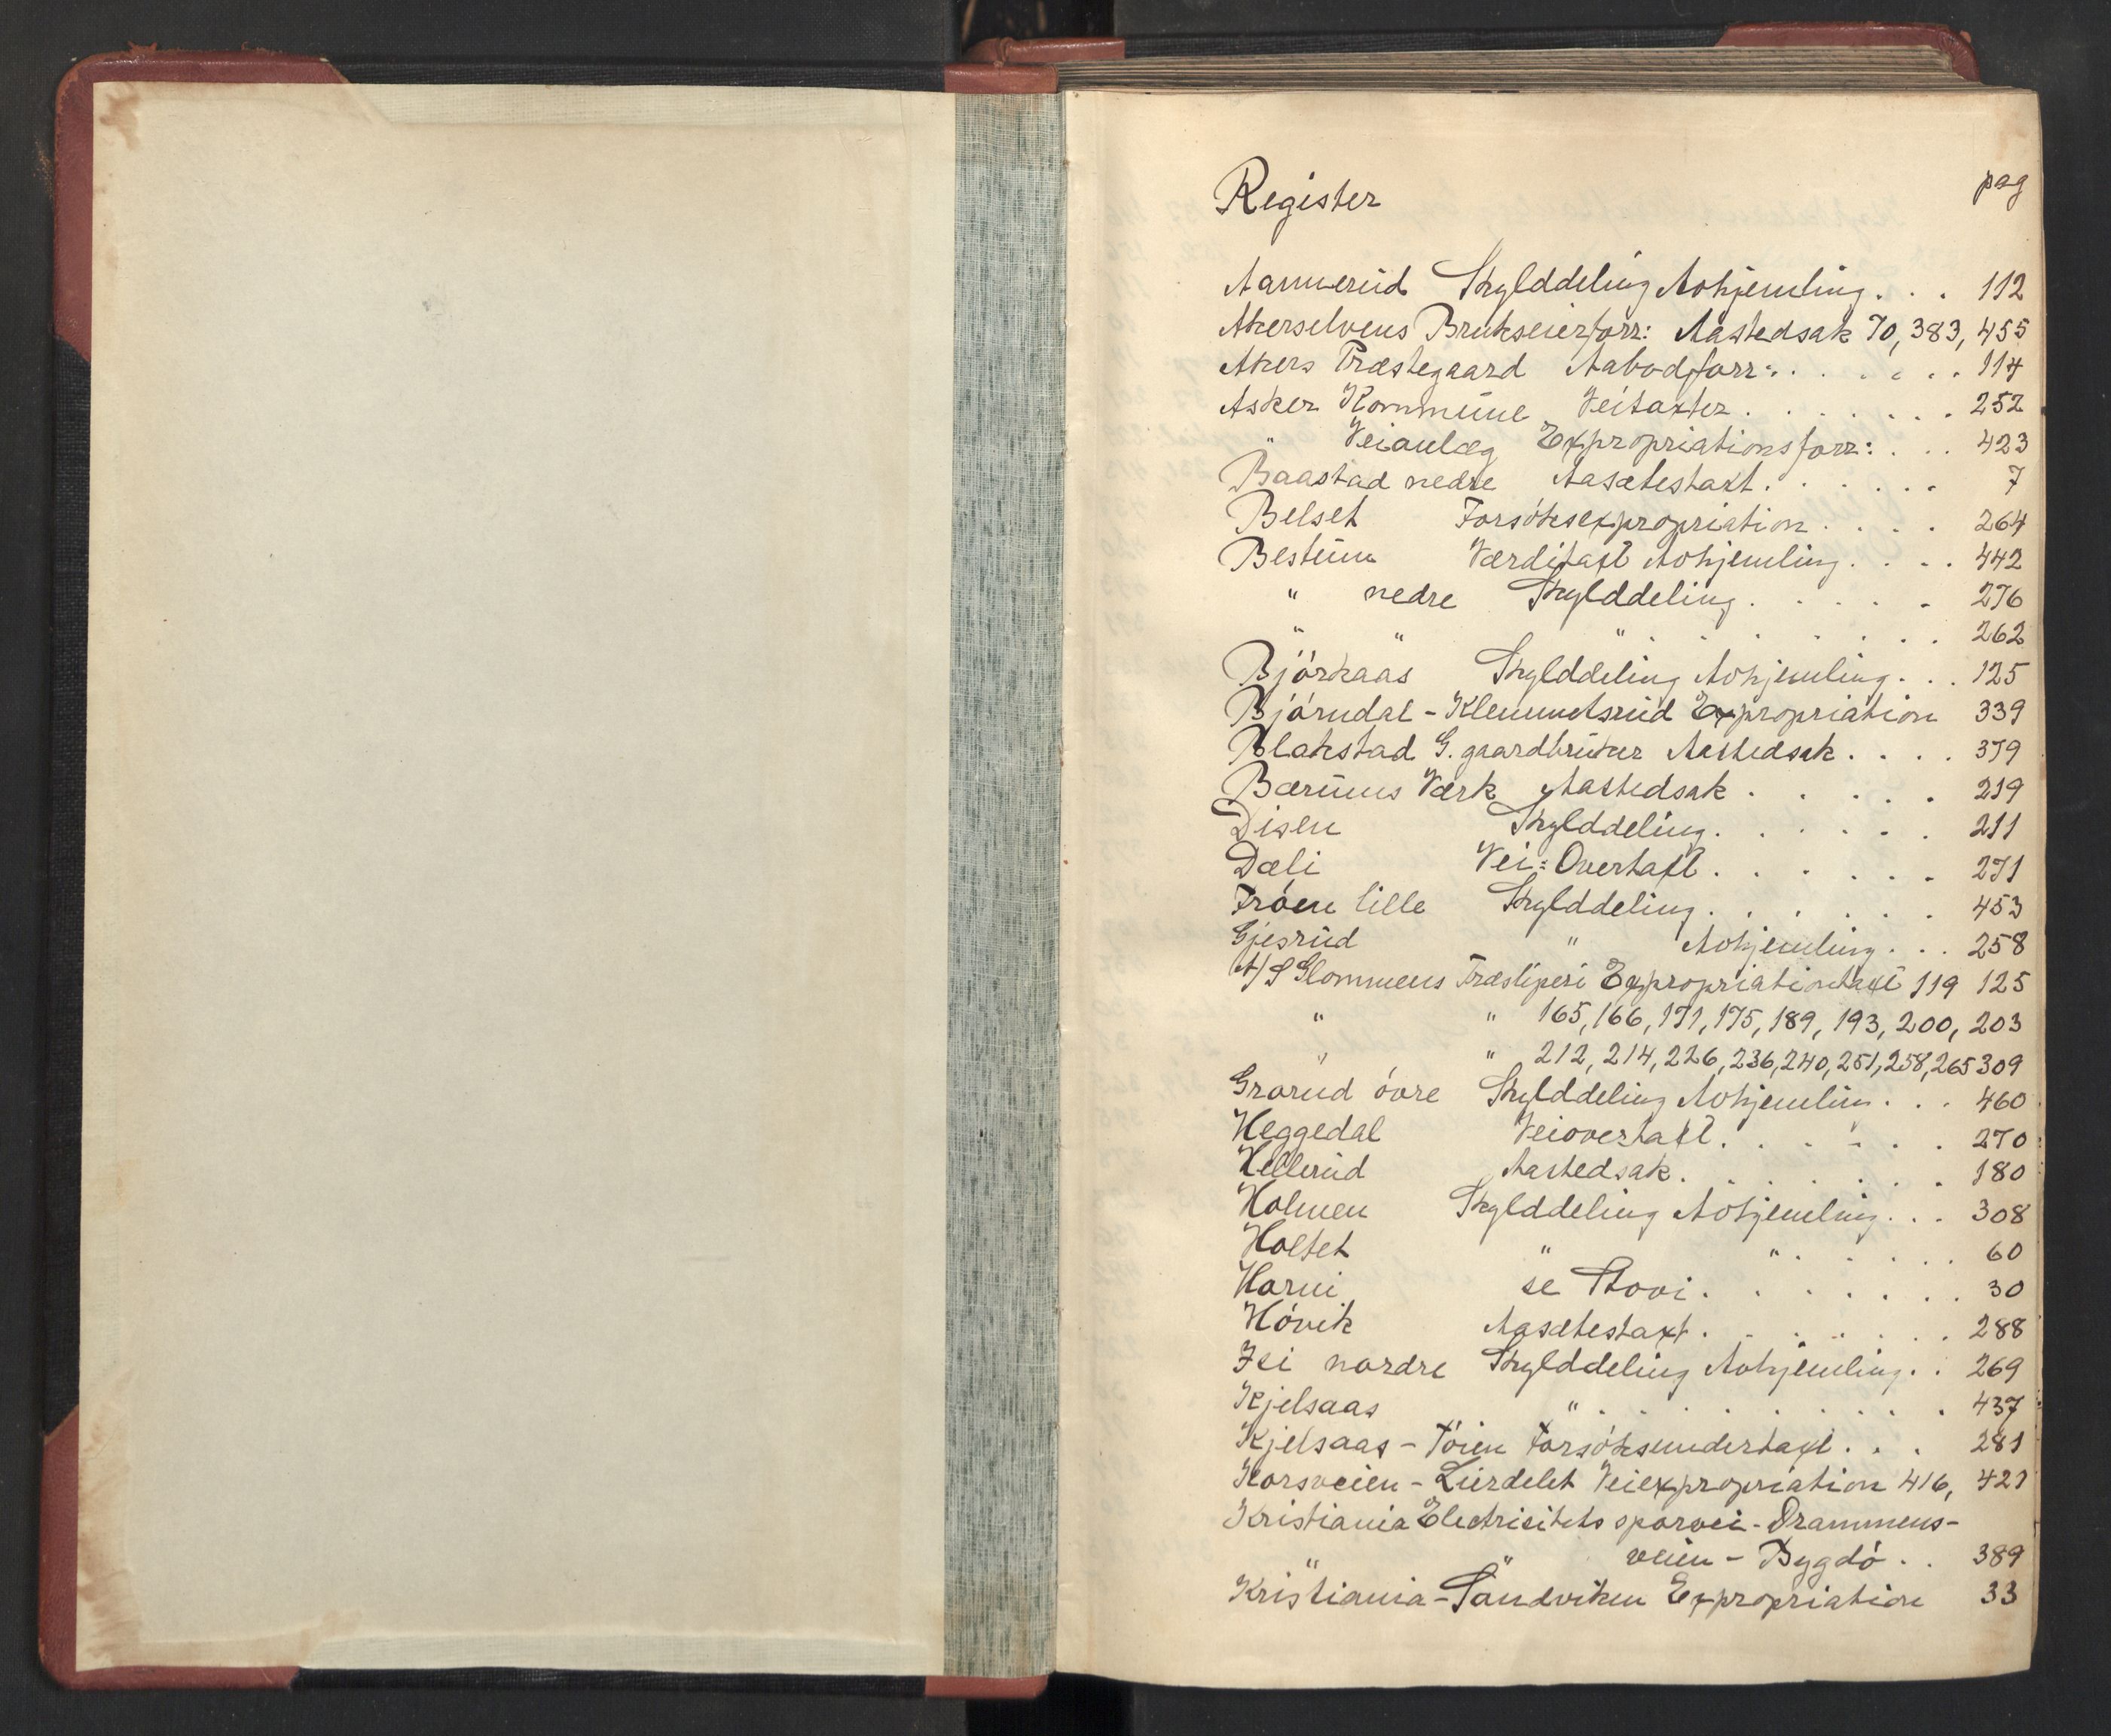 Register pag
Aamerud Skylddeling Avhjemling . . . 112
Akerselvens Brukseierforr: Aastedsak 70, 383, 455
Akers Præstegaard Aabodsforr: . . . . . . 114
Asker Kommune Veitaxter . . . . . . . 252
" Veianlæg Expropriationsforr: . . . 423
Baastad nedre Aasætestaxt . . . . . . 7
Belset Forsöksexpropriation . . . . 264
Bestum Værditaxt Avhjemling . . . . 442
" nedre Skylddeling . . . . . 276
" " " . . . . . . . . 262
Björkaas Skylddeling Avhjemling . . . 125
Björndal - Klemmetsrud Expropriation 339
Blakstad G. gaardbruker Aastedsak . . . . 379
Bærums Værk Aastedsak . . . . . 219
Disen Skylddeling . . . . . . 211
Dæli Vei: Overtaxt . . . . . . 271
Fröen lille Skylddeling . . . . . . 453
Gjesrud " Avhjemling . . . 258
A/S Glommens Træsliperi Expropriationtaxt 119 125
" " 165, 166, 171, 175, 189, 193, 200, 203
" " 212, 214, 226, 236, 240, 251, 258, 265 309
Grorud övre Skylddeling Avhjemling . . . 460
Heggedal Veiovertaxt . . . . . . 270
Hellerud Aastedsak . . . . . . . 180
Holmen Skylddeling Avhjemling . . . 308
Holtet " " . . . . . . 60
Horni se Stovi . . . . . . . 30
Hövik Aasætestaxt . . . . . . . 288
Isi nordre Skylddeling Avhjemling . . 269
Kjelsaas " . . . . . . . . . . 437
Kjelsaas - Töien Forsöksundertaxt . . . 281
Korsveien - Lierdelet Veiexpropriation 416, 421
Kristiania Electricitets sporvei - Drammens-
" " veien - Bygdö . . 389
Kristiania - Sandviken Expropriation 33